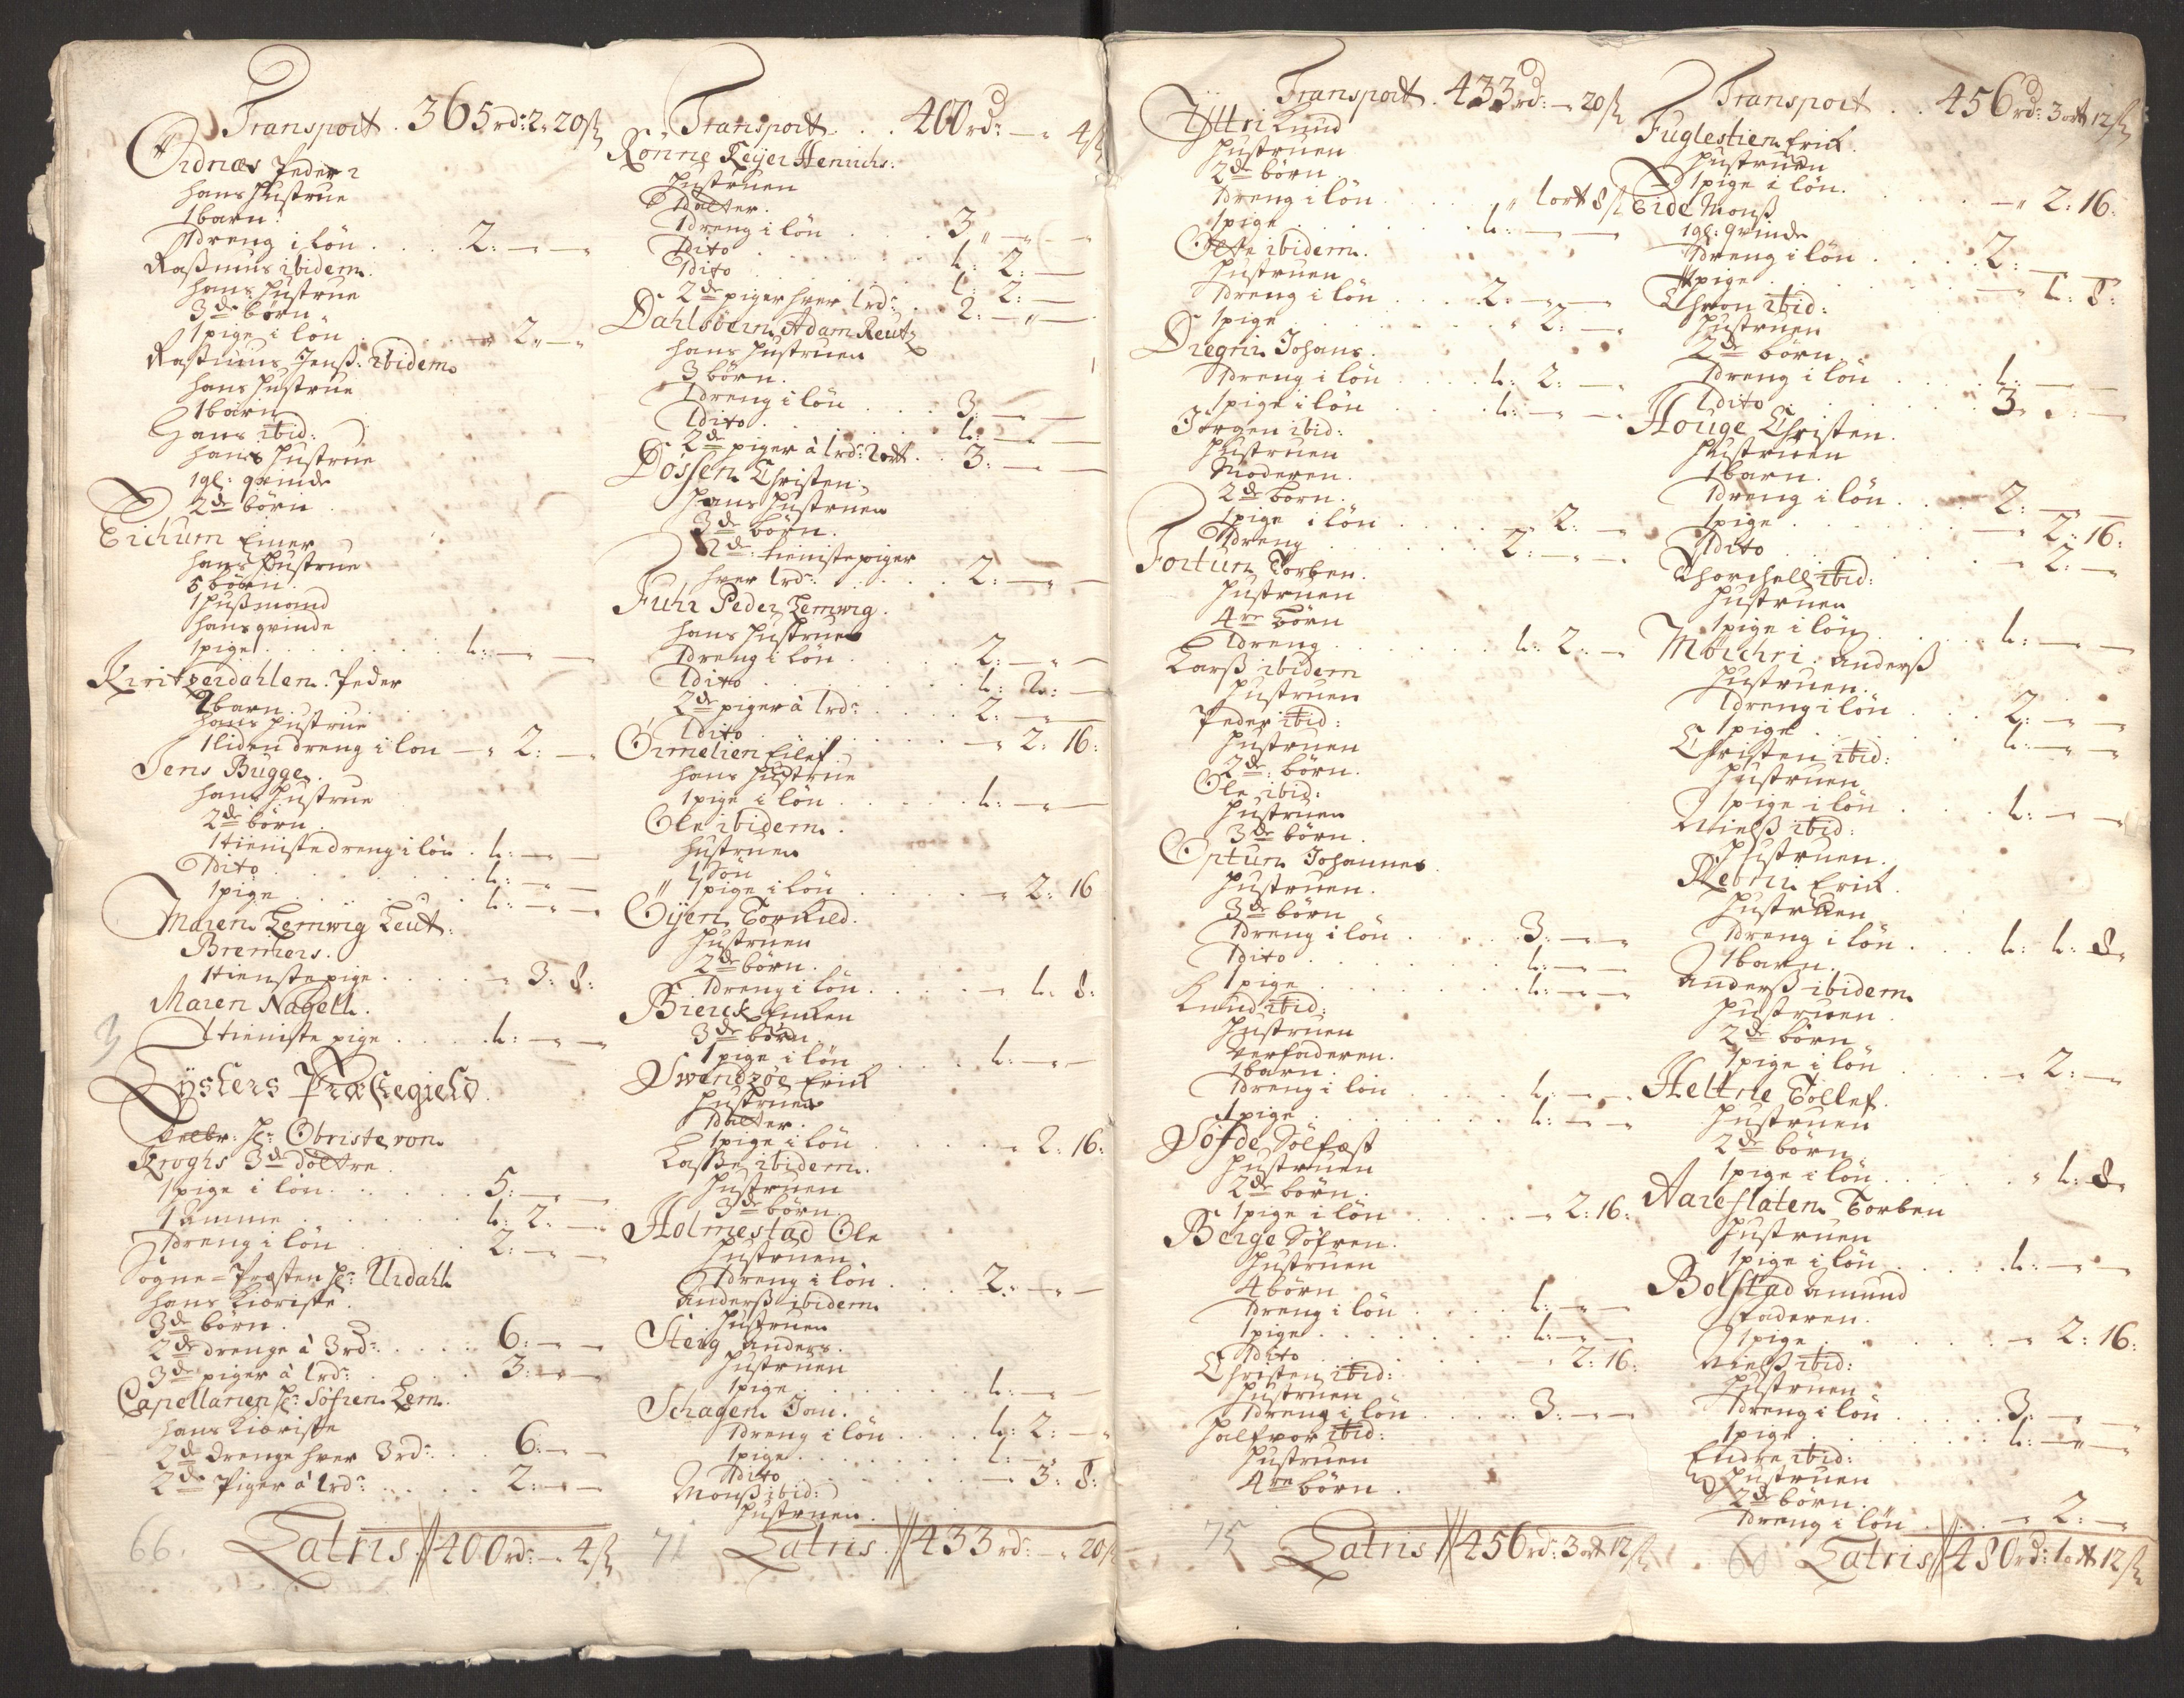 Transport . 365 rd: 2 „ 20 ß
Ordnæs Peder
hans hustrue
1 barn
1 dreng i lön . . . . 2: — —
Rasmus ibidem.
hans hustrue
3de börn
1 pige i lön . . . — 2 „ —
Rasmus Jenß. ibidem
hans hustrue
1 barn
Hans ibid:
hans hustrue
1 gl: qvinde
2de börn
Eichum Einer
hans hustrue
5 börn.
1 husmand
hans qvinde
1 pige . . . . . . 1: — —
Kiritzerdahlen. Peder
1 barn
hans hustrue
1 liden dreng i lön — „ 2: —
Jens Bugge.
hans hustrue
2de börn.
1 tieniste dreng i lön . 1: — —
Dito . . . . . . . 1: — —
1 pige . . . . . . 1: — —
Maren Lemwig Leut:
Bremers.
1 tienste pige . . . . — „ 3: 8:
Maren Nagell.
1 tieniste pige . . . . 1: — —
3
Lysters Præstegield.
Velbr: hr: Obriste von
Kroghs 3de döttre.
1 pige i lön . . . . . 5: — —
1 Amme . . . . . . 1: 2: —
1 dreng i lön . . . . 2: — —
Sogne-Præsten hr: Urdahl
hans Kieriste.
3de börn.
2de drenge à 3 rd: . . . . 6: — —
3de piger à 1 rd: . . . . 3: — —
Capellanen hr: Söfren Lem.
hans Kieriste
2de drenge hver 3 rd: . . 6: — —
2de Piger à 1 rd: . . . . 2: — —
66.
Latris // 400 rd: — 4 ß
Transport . . . 400 rd: — „ 4 ß
Rönne Leyer Henrichs:
Hustruen
1 datter.
1 dreng i lön . . . 3 „ — —
1 dito . . . . . . 1: 2: —
1 dito . . . . . . 1: 2: —
2de piger hver 1 rd: . . 2: — „ —
Dahlsören, Adam Reutz
hans hustruen
3 börn.
1 dreng i lön . . . 3: — —
1 dito . . . . . . 1: — —
2de piger à 1 rd: 2 ort . . 3: — —
Dössen Christen,
hans hustruen
3de börn.
2de: tieniste piger
hver 1 rd: . . . . . 2: — „ —
Fuhr Peder Lemwig.
hans hustruen
1 dreng i lön . . . . 2: — „ —
1 dito . . . . . . . 1: 2: —
2de piger à 1 rd: . . . 2: — „
1 dito . . . . . . . — „ 2: 16:
Ormelien Eilef
hans hustrue
1 pige i lön . . . . . 1: — „ —
Ole ibidem.
hustruen
1 Sön
1 pige i lön . . . . . — „ 2: 16
Öyen Torkild.
hustruen
2de börn.
1 dreng i lön . . . . . — 1: 8:
Bierck Enken
3de börn
1 pige i lön . . . . . 1: — „ —
Swendzöe Erik
hustruen
1 datter.
1 pige i lön . . . . . — „ 2: 16:
Lasße ibidem.
hustruen
3de börn.
Holmestad Ole
hustruen
1 dreng i lön . . . . 2: — —
Anderß ibidem
hustruen
Steig Anders.
hustruen
1 pige . . . . . . . 1: — „ —
Schagen Jan.
1 dreng i lön . . . . . 1: 2: — „
1 pige . . . . . . . 1: — „
1 dito . . . . . . . — 3: 8:
Monß ibid:
hustruen.
71
Latris // 433 rd: — „ 20 ß
Transport . 433 rd: — „ 20 ß
Yttri Knud
hustruen
2de börn.
1 dreng i lön . . . . . „ 1 ort 8 ß
1 pige . . . . . . . 1: — —
Oluffe ibidem.
hustruen
1 dreng i lön . . . . 2: — —
1 pige . . . . . . . „ 2: — „
Dregni Johans.
1 dreng i lön . . . . 1: 2: — „
1 pige i lön . . . . 1: — — „
Jörgen ibid:
hustruen
Moderen.
2de börn.
1 pige i lön . . . . . — „ 2: — „
1 dreng . . . . . . . 2: — „ —
Fortun Torben.
hustruen
4re börn
1 dreng . . . . . . . 1: 2: —
Larß ibidem
hustruen
Peder ibid:
hustruen
2de: börn.
Ole ibid:
hustruen
3de börn.
Optun Johannes
hustruen.
3de börn
1 dreng i lön . . . . 3: — „
1 dito . . . . . . . 1: — „ —
1 pige . . . . . . . 1: — „ —
Knud ibid:
hustruen
verfaderen.
1 barn.
1 dreng i lön . . . . 1: — „
1 pige . . . . . . . 1: — „
Söfde Sölfæst
hustruen
2de börn.
1 pige i lön . . . . . — 2: 16:
Berge Söfren.
hustruen
4 börn
1 dreng i lön . . . . 1: — „
1 pige . . . . . . . 1: — „
1 dito . . . . . . . — „ 2: 16:
Christen ibid:
hustruen
1 dreng i lön . . . . 3: — —
Halfvor ibid:
hustruen
4re börn.
75
Latris // 456 rd: 3 ort 12 ß
Transport . . 456 rd: 3 ort 12 ß
Fuglestien Erik.
hustruen
1 pige i lön. . . . . — „ 2: 16:
Eide Monß
1 gl: qvinde
1 dreng i lön . . . . 2: —
1 pige . . . . . . . — 1: 8:
Thron ibid:
hustruen
2de börn.
1 dreng i lön . . . . 1: — —
1 dito . . . . . . . 3 „ — —
Houge Christen.
hustruen
1 barn.
1 dreng i lön . . . . 2: — —
1 pige . . . . . . . — „ 2: 16:
1 dito . . . . . . . — „ 2: — „
Thorchell ibid:
hustruen
1 pige i lön . . . . . 1: — —
Mörchri Anderß
hustruen.
1 dreng i lön . . . . 2: — „
1 pige . . . . . . . 1: — „
Christen ibid:
hustruen
1 pige i lön . . . . . 1: — „
Nielß ibid:
hustruen.
Rebni Erik.
hustruen
1 dreng i lön . . . . 1: 1: 8 „
1 barn.
Anderß ibidem
hustruen.
2de börn
1 pige i lön . . . . . — „ 2: — „
Heltne Tollef.
hustruen
2de börn.
1 pige i lön . . . . . „ 1: 8 „
Aareflaten Torben
hustruen
1 pige i lön . . . . . 1: — „
Bolstad Amund
faderen.
1 pige . . . . . . . — „ 2: 16:
Nielß ibid:
hustruen
1 dreng i lön . . . . 3: — „
1 pige . . . . . . . 1: — „ —
Endre ibid:
hustruen
2de börn.
1 dreng i lön . . . . — „ 2: — „
60
Latris // 480 rd: 1 ort 12 ß